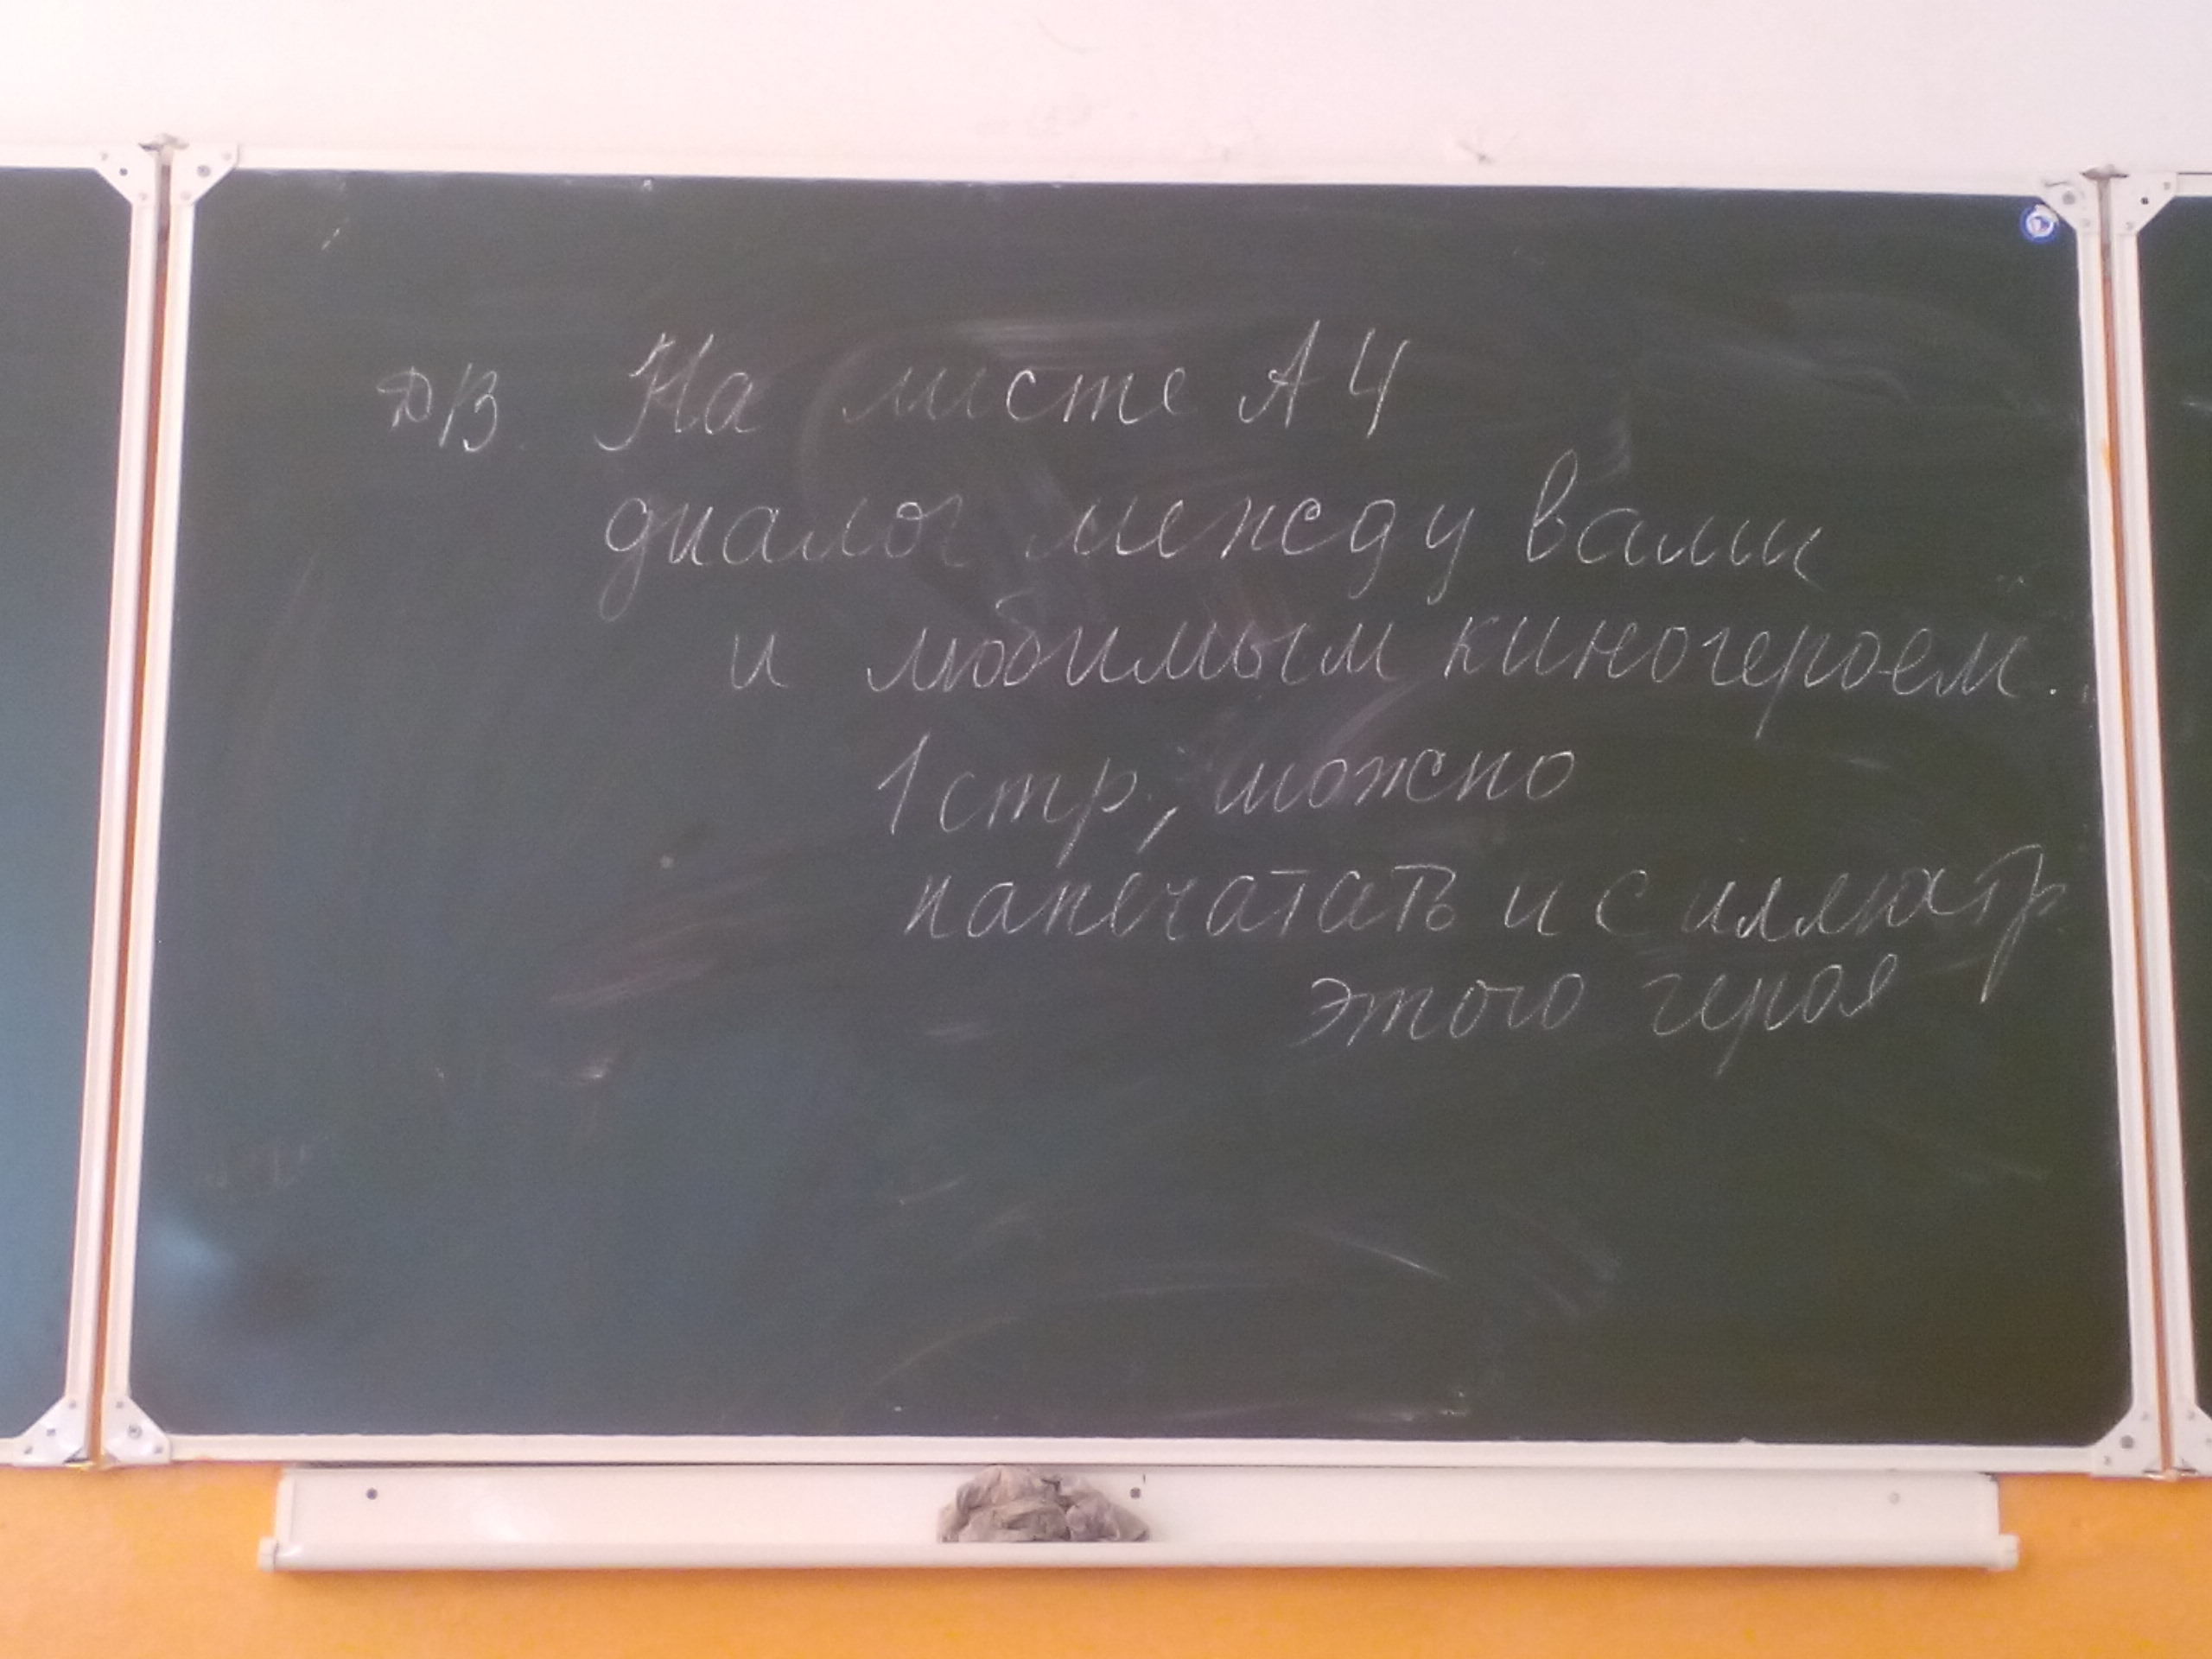 Д/З. На листе А4
диалог между вами
и любимым киногероем.
1 стр., можно
напечатать и с иллюстр.
этого героя